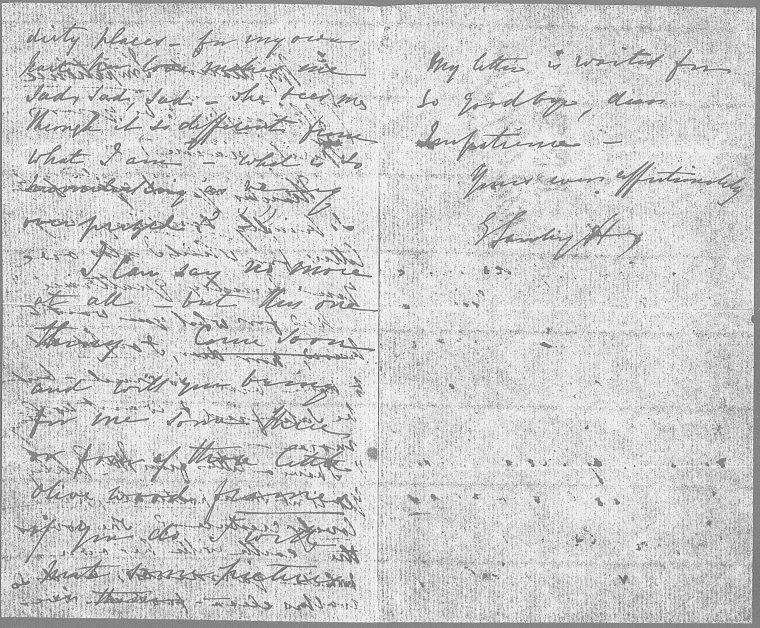 dirty places - for my own
part her love makes me
sad, sad, sad - she sees me
though it is different from
what I am - what is so
humiliating as being
overprized?
I can say no more
at all - but this one
thing Come soon
and will you bring
for me some three
or four of those little
olive wood frames
if you do I will
some pictures
in them -
My letter is waited for
So goodbye, dear
Impatience -
Yours ever affectionately